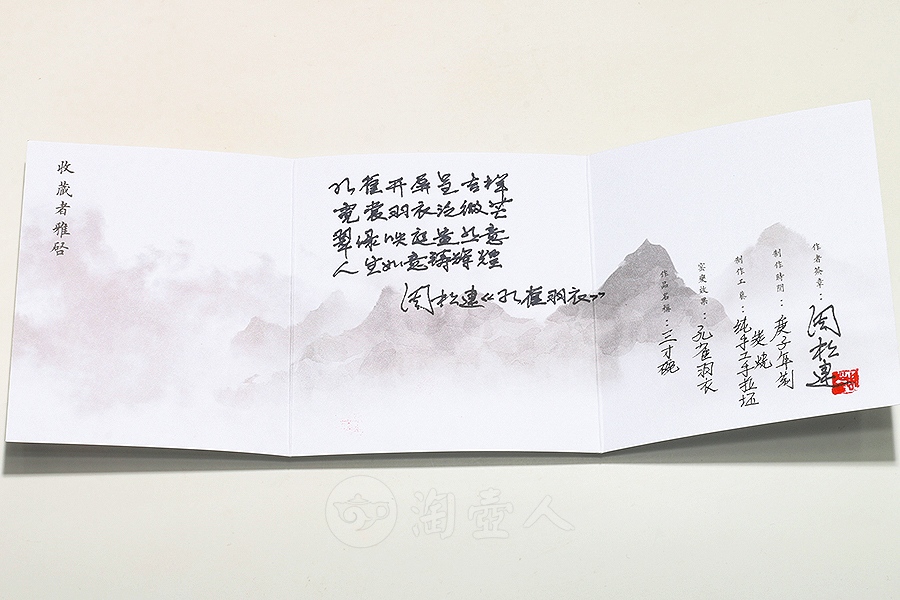 收藏者雅啓
孔雀开屏呈吉祥
霓裳羽衣泛微芒
翠绿
人生如意铸辉煌
周松连《孔雀羽衣》
作者签章：周松連
制作時間：庚子年制
柴烧
制作工藝：纯手工手拉坯
窑變效果：孔雀羽衣
作品名稱：三寸碗
淘壶人